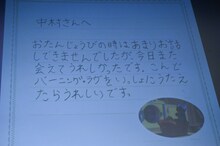 中村さんへ
おたんじょうびの時はあまりお話
してきませんでしたが、今日また
会えてうれしかったです。こんど
バーニングラヴをいっしょにうたえ
たらうれしいです。